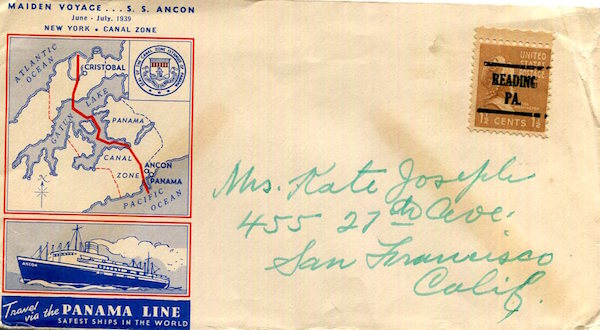 MAIDEN VOYAGE... S. S. ANCON
June - July, 1939
NEW YORK • CANAL ZONE
ATLANTIC OCEAN
CRISTOBAL
GATUN LAKE
PANAMA
CANAL ZONE
ANCON
PANAMA
PACIFIC OCEAN
ANCON
Travel via the PANAMA LINE
SAFEST SHIPS IN THE WORLD
UNITED STATES
READING
PA.
1½ CENTS 1½
Mrs. Kate Joseph
455 27th Ave.
San Francisco
Calif.